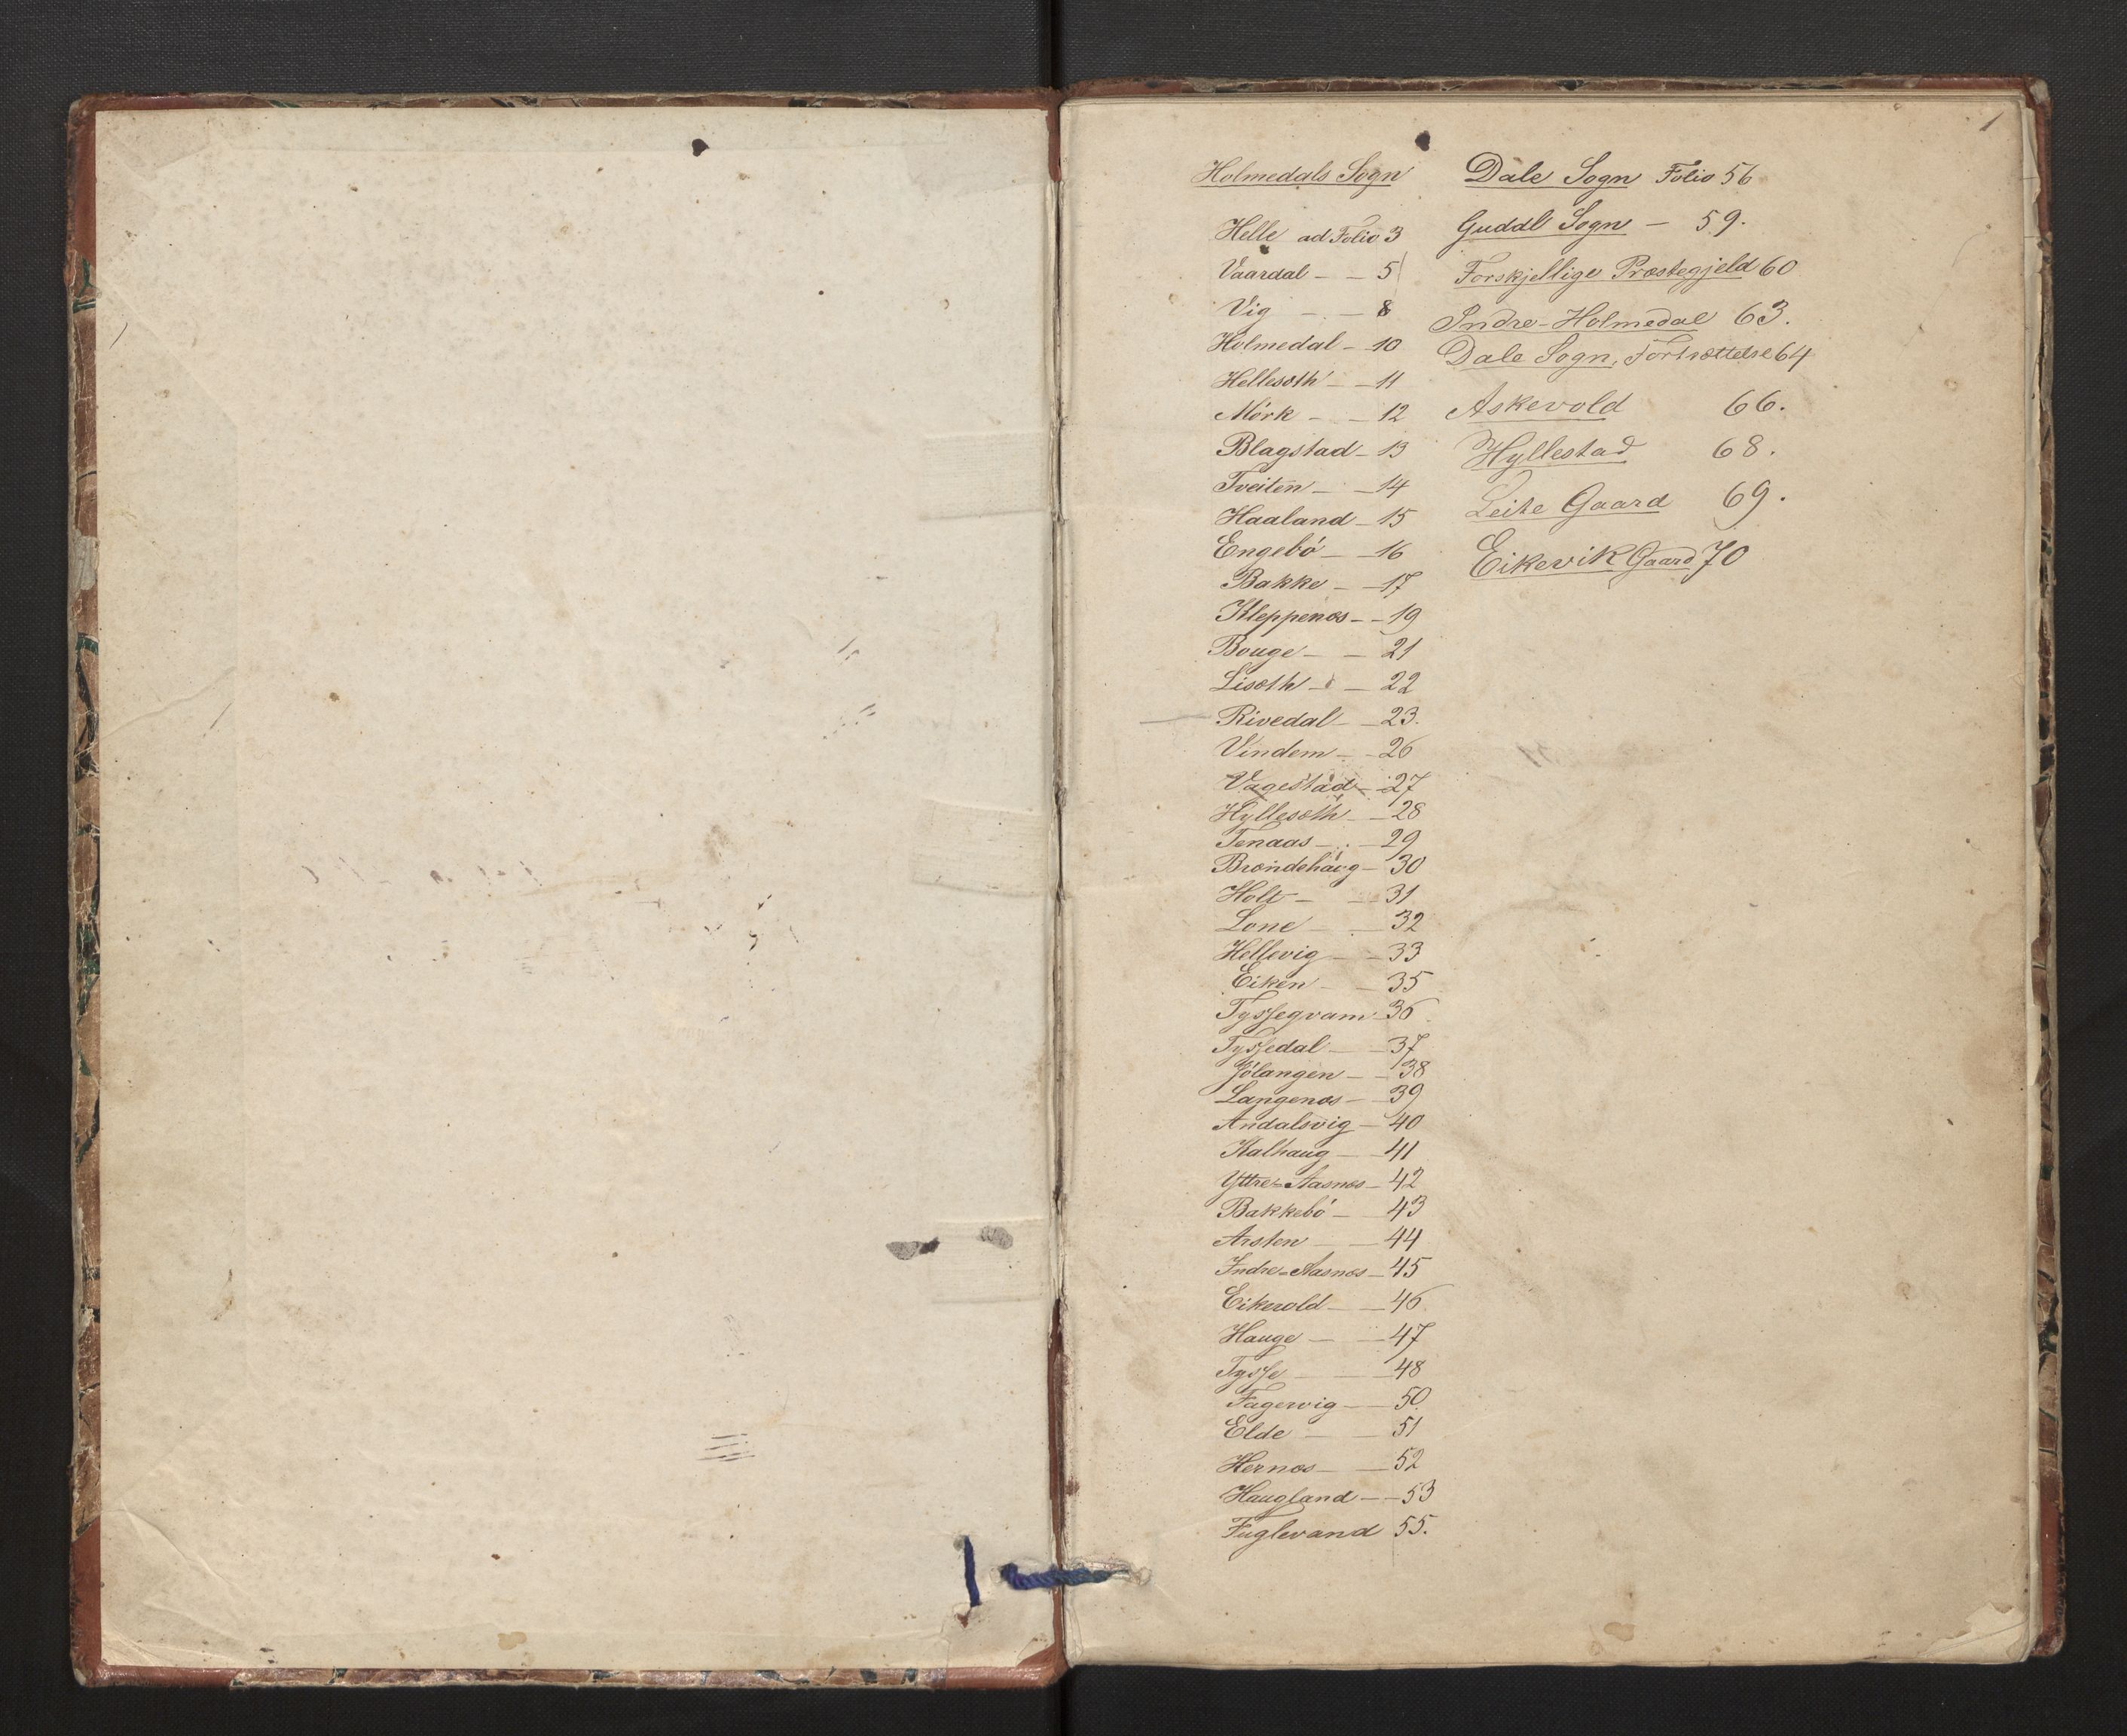 1
Holmedals Sogn
Helle ad Folio 3
Vaardal - - 5
Vig - - 8
Holmedal - 10
Hellesæth - - 11
Mörk - - 12
Blagstad - 13
Tveiten - - 14
Haaland - 15
Engebö - - 16
Bakke - - 17
Kleppenæs - - 19
Bouge - - 21
Lisæth - - 22
Rivedal - - 23.
Vindem - - 26
Vagestad - 27
Hyllesæth - - 28
Tenaas - - 29
Brændehaug - 30
Holt - - 31
Lone - - 32
Hellevig - - 33
Eiken - - 35
Tyssegvam - 36
Tyssedal - - 37
Jölangen - - 38
Langenæs - - 39
Andalsvig - 40
Kalhaug - - 41
Yttre=Aasnæs - 42
Bakkebö - - 43
Arsten - - 44
Indre=Aasnæs - 45
Eikevold - - 46
Hauge - - 47
Tysse - - 48
Fagervig - - 50
Elde - - 51
Hernæs - - 52
Haugland - - 53
Fuglevand 55.
Dale Sogn Folio 56
Guddal Sogn - 59.
Forskjellige Præstegjeld 60
Indre-Holmedal 63.
Dale Sogn, Fortsættelse 64
Askevold 66.
Hyllestad 68.
Leite Gaard 69.
Eikevik Gaard 70